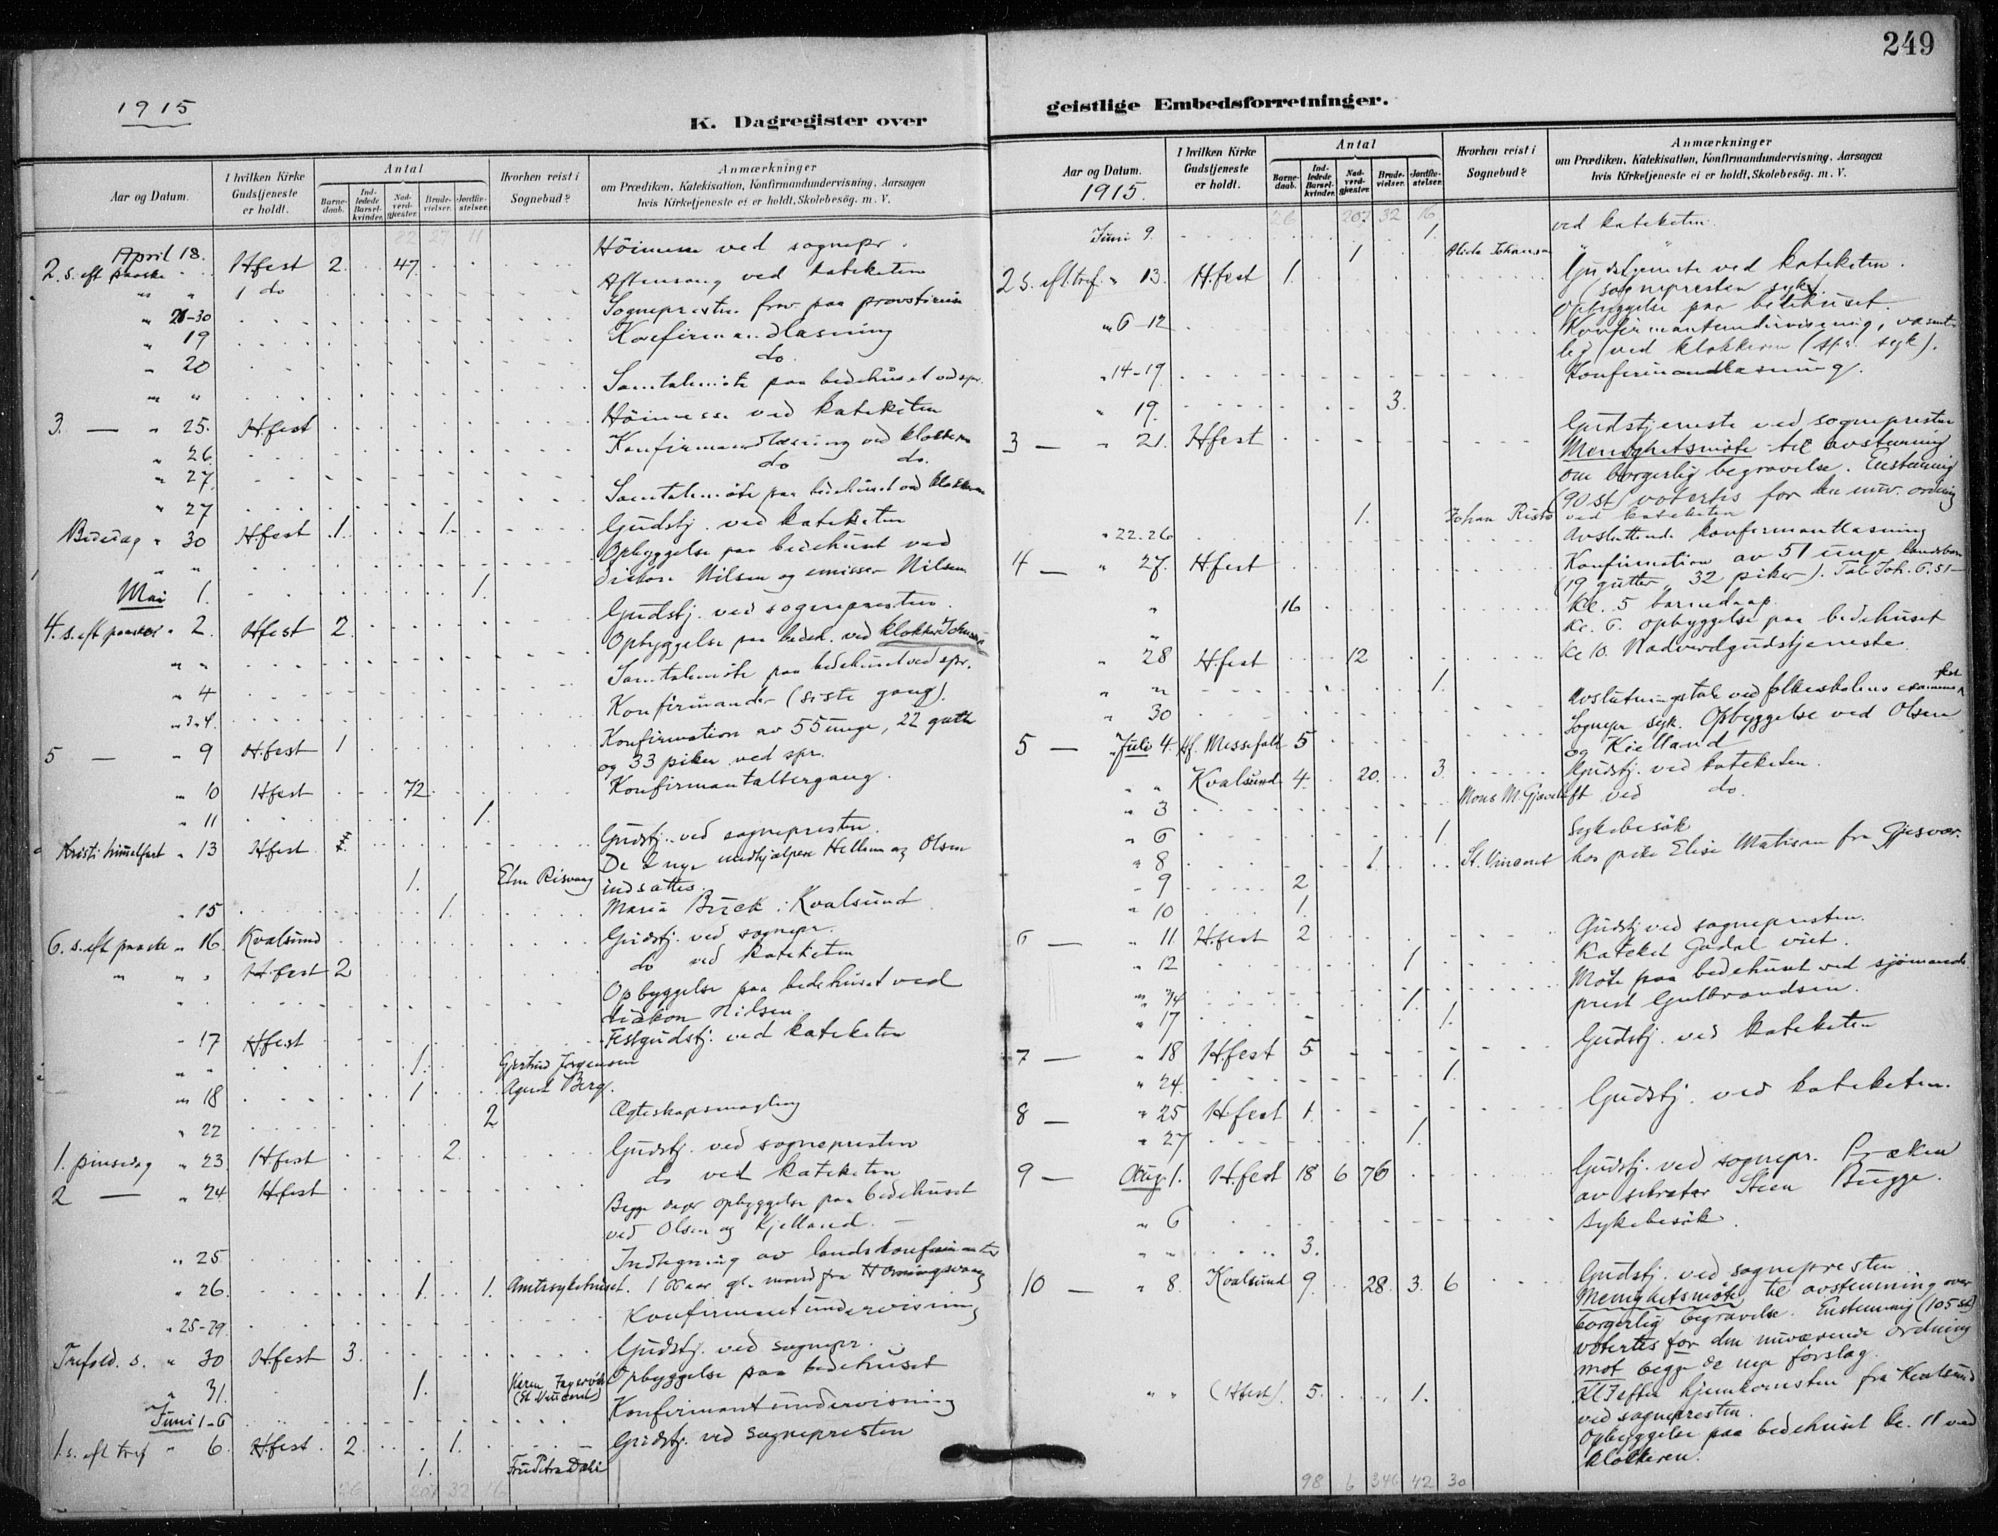 249
1915
K. Dagregister over
geistlige Embedsforretninger.
Aar og Datum.
I hvilken Kirke Gudstjeneste er holdt.
Antal
Barnedaab.
Indledede Barselkvinder.
Nadverdgjester.
Brudevielser.
Jordfæstelser.
Hvorhen reist i Sognebud?
Anmærkninger
om Prædiken, Katekisation, Konfirmandundervisning, Aarsagen
hvis Kirketjeneste ei er holdt, Skolebesøg. m. V.
82 27 11
April 18.
2 s. eft paaske Hfest 2 47 Höimesse ved sognepr.
" " 1 do Aftensang ved kateketen
" 21-30 Sognepresten frav paa
" 19 Konfirmandlæsning
" 20 do
" " Samtalemöte paa bedehuset ved spr.
3. — " 25. H.fest Höimesse ved kateketen
" 26. Konfirmandlæsning ved klokkeren
" 27. do do.
" 27 Samtalemöte paa bedehuset ved klokkeren
Bededag " 30 Hfest 1. 1. Gudstj. ved kateketen
" " Opbyggelse paa bedehuset ved
Nilsen og emissær Nilsen
Mai 1. 1.
4. s. eft paaske " 2. Hfest 2. Gudstj. ved sognepresten.
" " Opbyggelse paa bedeh. ved klokker
" 4 Samtalemöte paa bedehuset ved spr.
" 3-4. Konfirmander (siste gang).
5 — " 9 H.fest 1 Konfirmation av 55 unge, 22 gutter
og 33 piker ved spr.
" 10 Hfest 72 Konfirmantaltergang.
" 11 1.
Kristi himmelfart " 13 Hfest Gudstj. ved sognepresten.
De 2 nye medhjælpere og Olsen
1. indsattes.
" 15 1. Maria Buck i Kvalsund
6. s. eft paaske " 16 Kvalsund Gudstj. ved sognepr.
" " " H.fest 2 do ved kateketen
" Opbyggelse paa bedehuset ved
diakon Nilsen.
" 17 Hfest Festgudstj. ved kateketen
" " 1. Gjertrud Jørgensen
" 18 1 Berg.
" 22 2 Ægteskapsmægling
1. pinsedag " 23. Hfest 2. Gudstj. ved sognepresten
2 — " 24. Hfest do ved kateketen
Begge dager opbyggelse paa bedehuset
ved Olsen og Kjelland. —
" 25 Indtegning av landskonfirmanter
" 26. 1 1. Amtssykehuset. gl. mand fra Honingsvaag
" 25-29. Konfirmantundervisning
Trefold. s. " 30 H.fest 3. Gudstj. ved sognepr.
Opbyggelse paa bedehuset
" 31. 1. Karen (St. Vincent)
Juni 1-6 Konfirmantundervisning
1. s. eft tref " 6. Hfest 2. 1. Gudstj. ved sognepresten
1. Fru Petra Dahl
26 207 32 16
Aar og Datum.
1915.
I hvilken Kirke Gudstjeneste er holdt.
Antal
Barnedaab.
Indledede Barselkvinder.
Nadverdgjester.
Brudevielser.
Jordfæstelser.
Hvorhen reist i Sognebud?
Anmærkninger
om Prædiken, Katekisation, Konfirmandundervisning, Aarsagen
hvis Kirketjeneste ei er holdt, Skolebesög. m. V.
26 207 32 16
Juni 9. 1. ved kateketen.
1 Johansen " "
2 s. eft. tref. " 13. H.fest 1. Gudstjeneste ved kateketen.
(sognepresten syk).
Opbyggelse paa bedehuset.
" 6-12 Konfirmantundervisning,
ved klokkeren (spr. syk).
" 14-19 Konfirmandlæsning.
" 19. 3.
3 — " 21. Hfest Gudstjeneste ved sognepresten
Menighetsmöte til avstemning
om borgerlig begravelse. Enstemmig
(90 st) votertes for den nuv. ordning
1. Johan ved kateketen
" 22-26 Avsluttende konfirmantlæsning
4 — " 27. H.fest Konfirmation av 51 unge landsbarn
(19 gutter, 32 piker). Joh. 6.51—
" 16 Kl. 5 barnedaap.
Kl. 6. opbyggelse paa bedehuset
" 28 H.fest 12 Kl 10. Nadverdgudstjeneste.
" " 1.
" 30 Avslutningstale ved folkeskolens examensfest
Sognepr syk. Opbyggelse ved Olsen
og Kielland
5 — " Juli 4. Hf. Messefald 5
" " Kvalsund 4. 20. 3. Gudstj. ved kateketen.
" 3 Mons M. ved do.
" 6 1 Sykebesök
" 8 1. St. Vincent hos pike Elise Matisen fra Gjesvær.
" 9 2
" 10 1.
6 — " 11 H.fest 2 Gudstj ved sognepresten.
Kateket viet.
" 12 1 Möte paa bedehuset ved sjömands-
" 14 1. prest Gulbrandsen.
" 17 1.
7 — " 18 H.fest 5 Gudstj. ved kateketen
" 24. 1.
8 — " 25 H.fest 1. Gudstj. ved kateketen.
" 27 1.
9 — Aug. 1. H.fest 18 6 76 Gudstj. ved sognepr. Præken
av sekretær Steen Bugge.
" 6 Sykebesök.
" " 3.
10 — " 8. Kvalsund 9. 28. 3. 6 Gudstj. ved sognepresten
Menighetsmöte til avstemning over
borgerlig begravelse. Enstemmig (105 st)
votertes for den nuværende ordning
mot begge de nye forslag.
" " (Hfest). 5. 1. Kl 7 efter hjemkomsten fra Kvalsund
ved sognepresten.
Opbyggelse paa bedehuset kl. 11 ved
klokkeren.
98 6 346 42 30